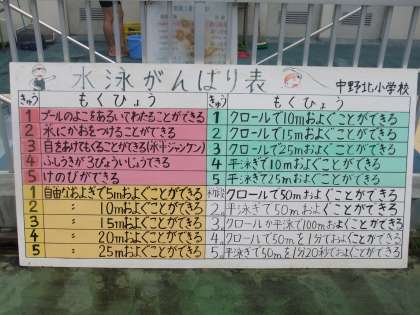 水泳がんばり表 中野北小学校
きゅう もくひょう
1 プールのよこをあるいてわたることができる
2 水にかおをつけることができる
3 目をあけてもぐることができる(水中ジャンケン)
4 ふしうきが3びょういじょうできる
5 けのびができる
1 自由なおよぎで5mおよぐことができる
2 〃 10mおよぐことができる
3 〃 15mおよぐことができる
4 〃 20mおよぐことができる
5 〃 25mおよぐことができる
きゅう もくひょう
1 クロールで10mおよぐことができる
2 クロールで15mおよぐことができる
3 クロールで25mおよぐことができる
4 平泳ぎで10mおよぐことができる
5 平泳ぎで25mおよぐことができる
初段 クロールで50mおよぐことができる
2 平泳ぎで50mおよぐことができる
3 クロールか平泳で100mおよぐことができる
4 クロールで50mを1分でおよぐことができる
5 平泳ぎで50mを1分20秒でおよぐことができる